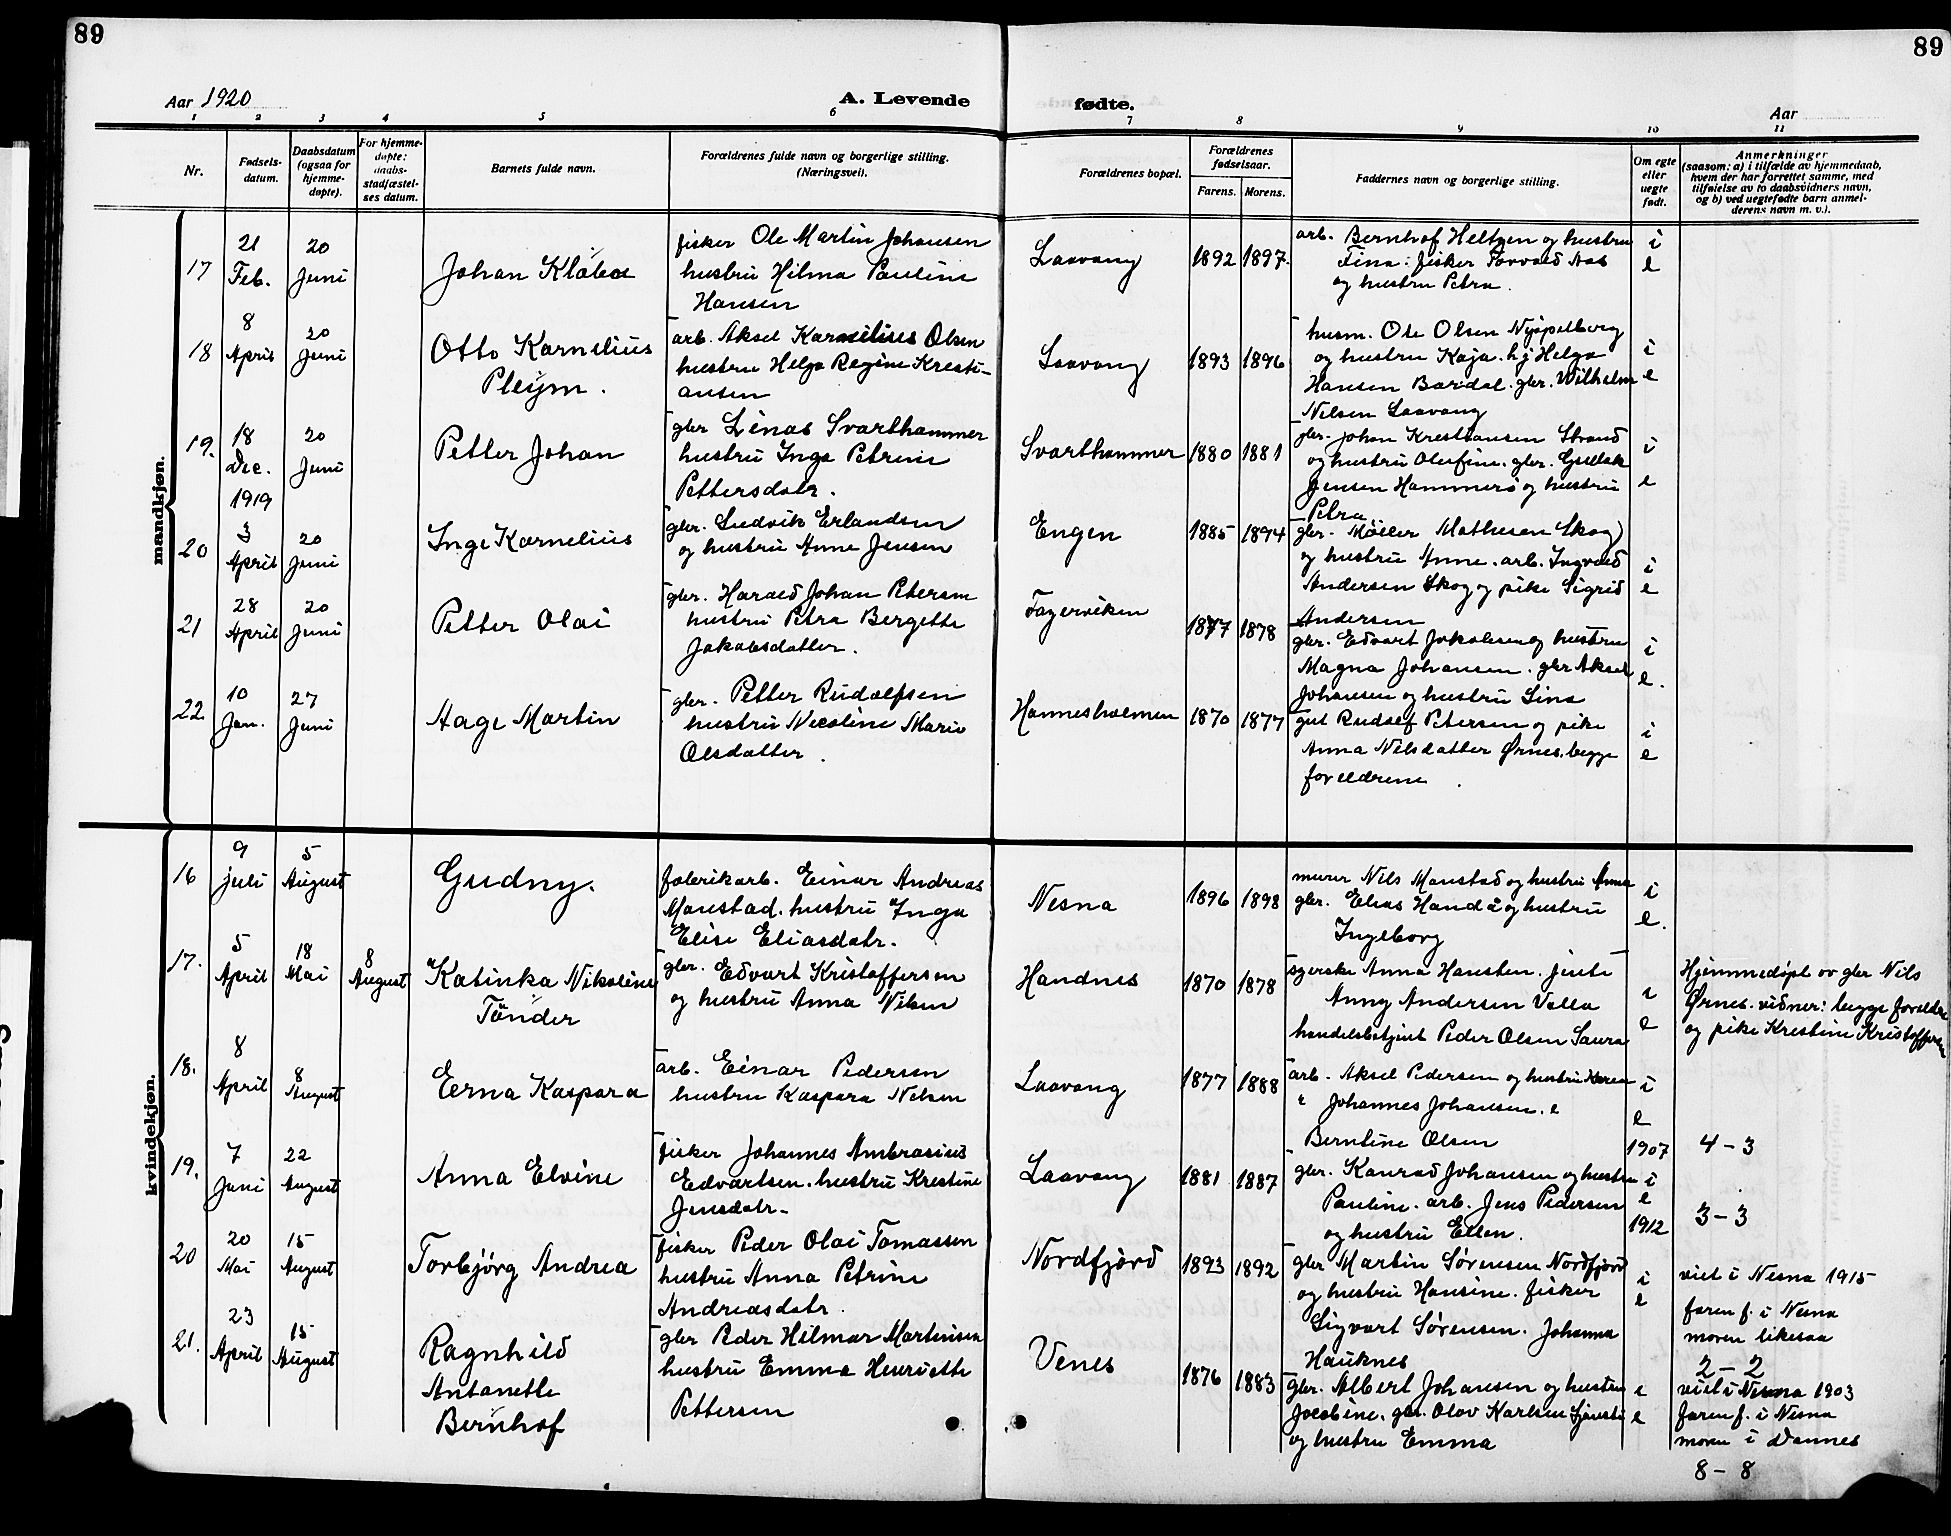 89
89
Aar 1920
A. Levende
fødte.
Aar
1 2 3 4 5 6 7 8 9 10 11
Nr.
Fødsels-
datum.
Daabsdatum
(ogsaa for
hjemme-
døpte).
For hjemme-
døpte:
daabs-
stadfæstel-
ses datum.
Barnets fulde navn.
Forældrenes fulde navn og borgerlige stilling.
(Næringsvei).
Forældrenes bopæl.
Forældrenes
fødselsaar.
Farens.
Morens.
Faddernes navn og borgerlige stilling.
Om egte
eller
uegte
født.
Anmerkninger
(saasom: a) i tilfælde av hjemmedaab,
hvem der har forrettet samme, med
tilføielse av to daabsvidners navn,
og b) ved uegtefødte barn anmel-
derens navn m. v.).
mandkjøn.
17
21
Feb.
20
Juni
Johan Kløbo
fisker Ole Martin Johansen
hustru Hilma Pauline
Hansen
Laavong
1892 1897.
arb. Bernhof Heltzen og hustru
Fina: fisker Torvald Aas
og hustru Petra.
i
e
18
8
April
20
Juni
Otto Kornelius
Pleym.
arb. Aksel Kornelius Olsen
hustru Helga Regine Kresti-
ansen
Laavong
1893 1896
husm. Ole Olsen
og hustru Kaja. hj Helga
Hansen Bardal. gbr. Wilhelm
Nilsen Laavong
i
e
19.
18
Dec.
1919
20
Juni
Petter Johan
gbr Linas Svarthammer
hustru Inga Petrine
Pettersdatr.
Svarthammer
1880 1881
gbr. Johan Krestiansen Strand
og hustru Olufine. gbr.
Jensen Hammerø og hustru
Petra
i
e
20
3
April
20
Juni
Inge Kornelius
gbr. Ludvik Erlandsen
og hustru Anne Jensen
Engen
1885 1894
gbr. Møller Mathesen Skog
og hustru Anne. arb. Ingvald
Andersen Skog og pike Sigrid
Andersen
i
e
21
28
April
20
Juni
Petter Olai
gbr. Harald Johan Petersen
hustru Petra Bergette
Jakobsdatter.
Fagerviken
1877 1878
gbr. Edvart Jakobsen og hustru
Magna Johansen. gbr Aksel
Johansen og hustru Lina
i
e.
22
10
Jan.
27
Juni
Aage Martin
gbr. Petter Rudolfsen
hustru Nicoline Marie
Olsdatter.
Hannesholmen
1870 1877
gut Rudolf Petersen og pike
Anna Nilsdatter Ørnes. begge
foreldrene.
i
e
kvindekjøn.
16
9
juli
5
August
Gudny.
fabrikarb. Einar Andreas
Monstad. hustru Inga
Elise Eliasdatr.
Nesna
1896 1898
murer Nils Monstad og hustru Anna
gbr. Elias Handå og hustru
Ingeborg
i
e.
17.
5
April
18
Mai
8
August
Katinka Nikoline
Tønder
gbr. Edvart Kristoffersen
og hustru Anna Nilsen
Handnes
1870 1878
syerske Anna Hansten. jente
Anny Andersen Valla
handelsbetjent Peder Olsen Saura
e
Hjemmedøpt av gbr Nils
Ørnes. vidner: begge foreldre
og pike Krestine Kristoffersen
18.
8
April
8
August
Erna Kaspara
arb. Einar Pedersen
hustru Kaspara Nilsen
Laavong
1877 1888
arb. Aksel Pedersen og hustru Karen
" Johannes Johansen. "
Berntine Olsen
i
e
1907
4 - 3
19.
7
Juni
22
August
Anna Elvine
fisker Johannes Ambrosius
Edvartsen. hustru Krestine
Jensdatr.
Laavong
1881 1887
gbr. Konrad Johansen og hustru
Pauline. arb. Jens Pedersen
og hustru Ellen.
i
e
1912
3-3
20
20
Mai
15
August
Torbjørg Andrea
fisker Peder Olai Tomassen
hustru Anna Petrine
Andreasdatr.
Nordfjord
1893 1892
gbr Martin Sørensen Nordfjord
og hustru Hansine. fisker
Sigvart Sørensen. Johanna
Hauknes
i
e
viet i Nesna 1915
faren f. i Nesna
moren likesaa
2-2
21.
23
April
15
August
Ragnhild
Antonette
Bernhof
gbr Peder Hilmar Martinsen
hustru Emma Henriette
Pettersen
Venes
1876 1883
gbr. Albert Johansen og hustru
Jocobine. gbr. Olav Karlsen
og hustru Emma
e
viet i Nesna 1903
faren f. i Nesna
moren i Dønnes
8 - 8